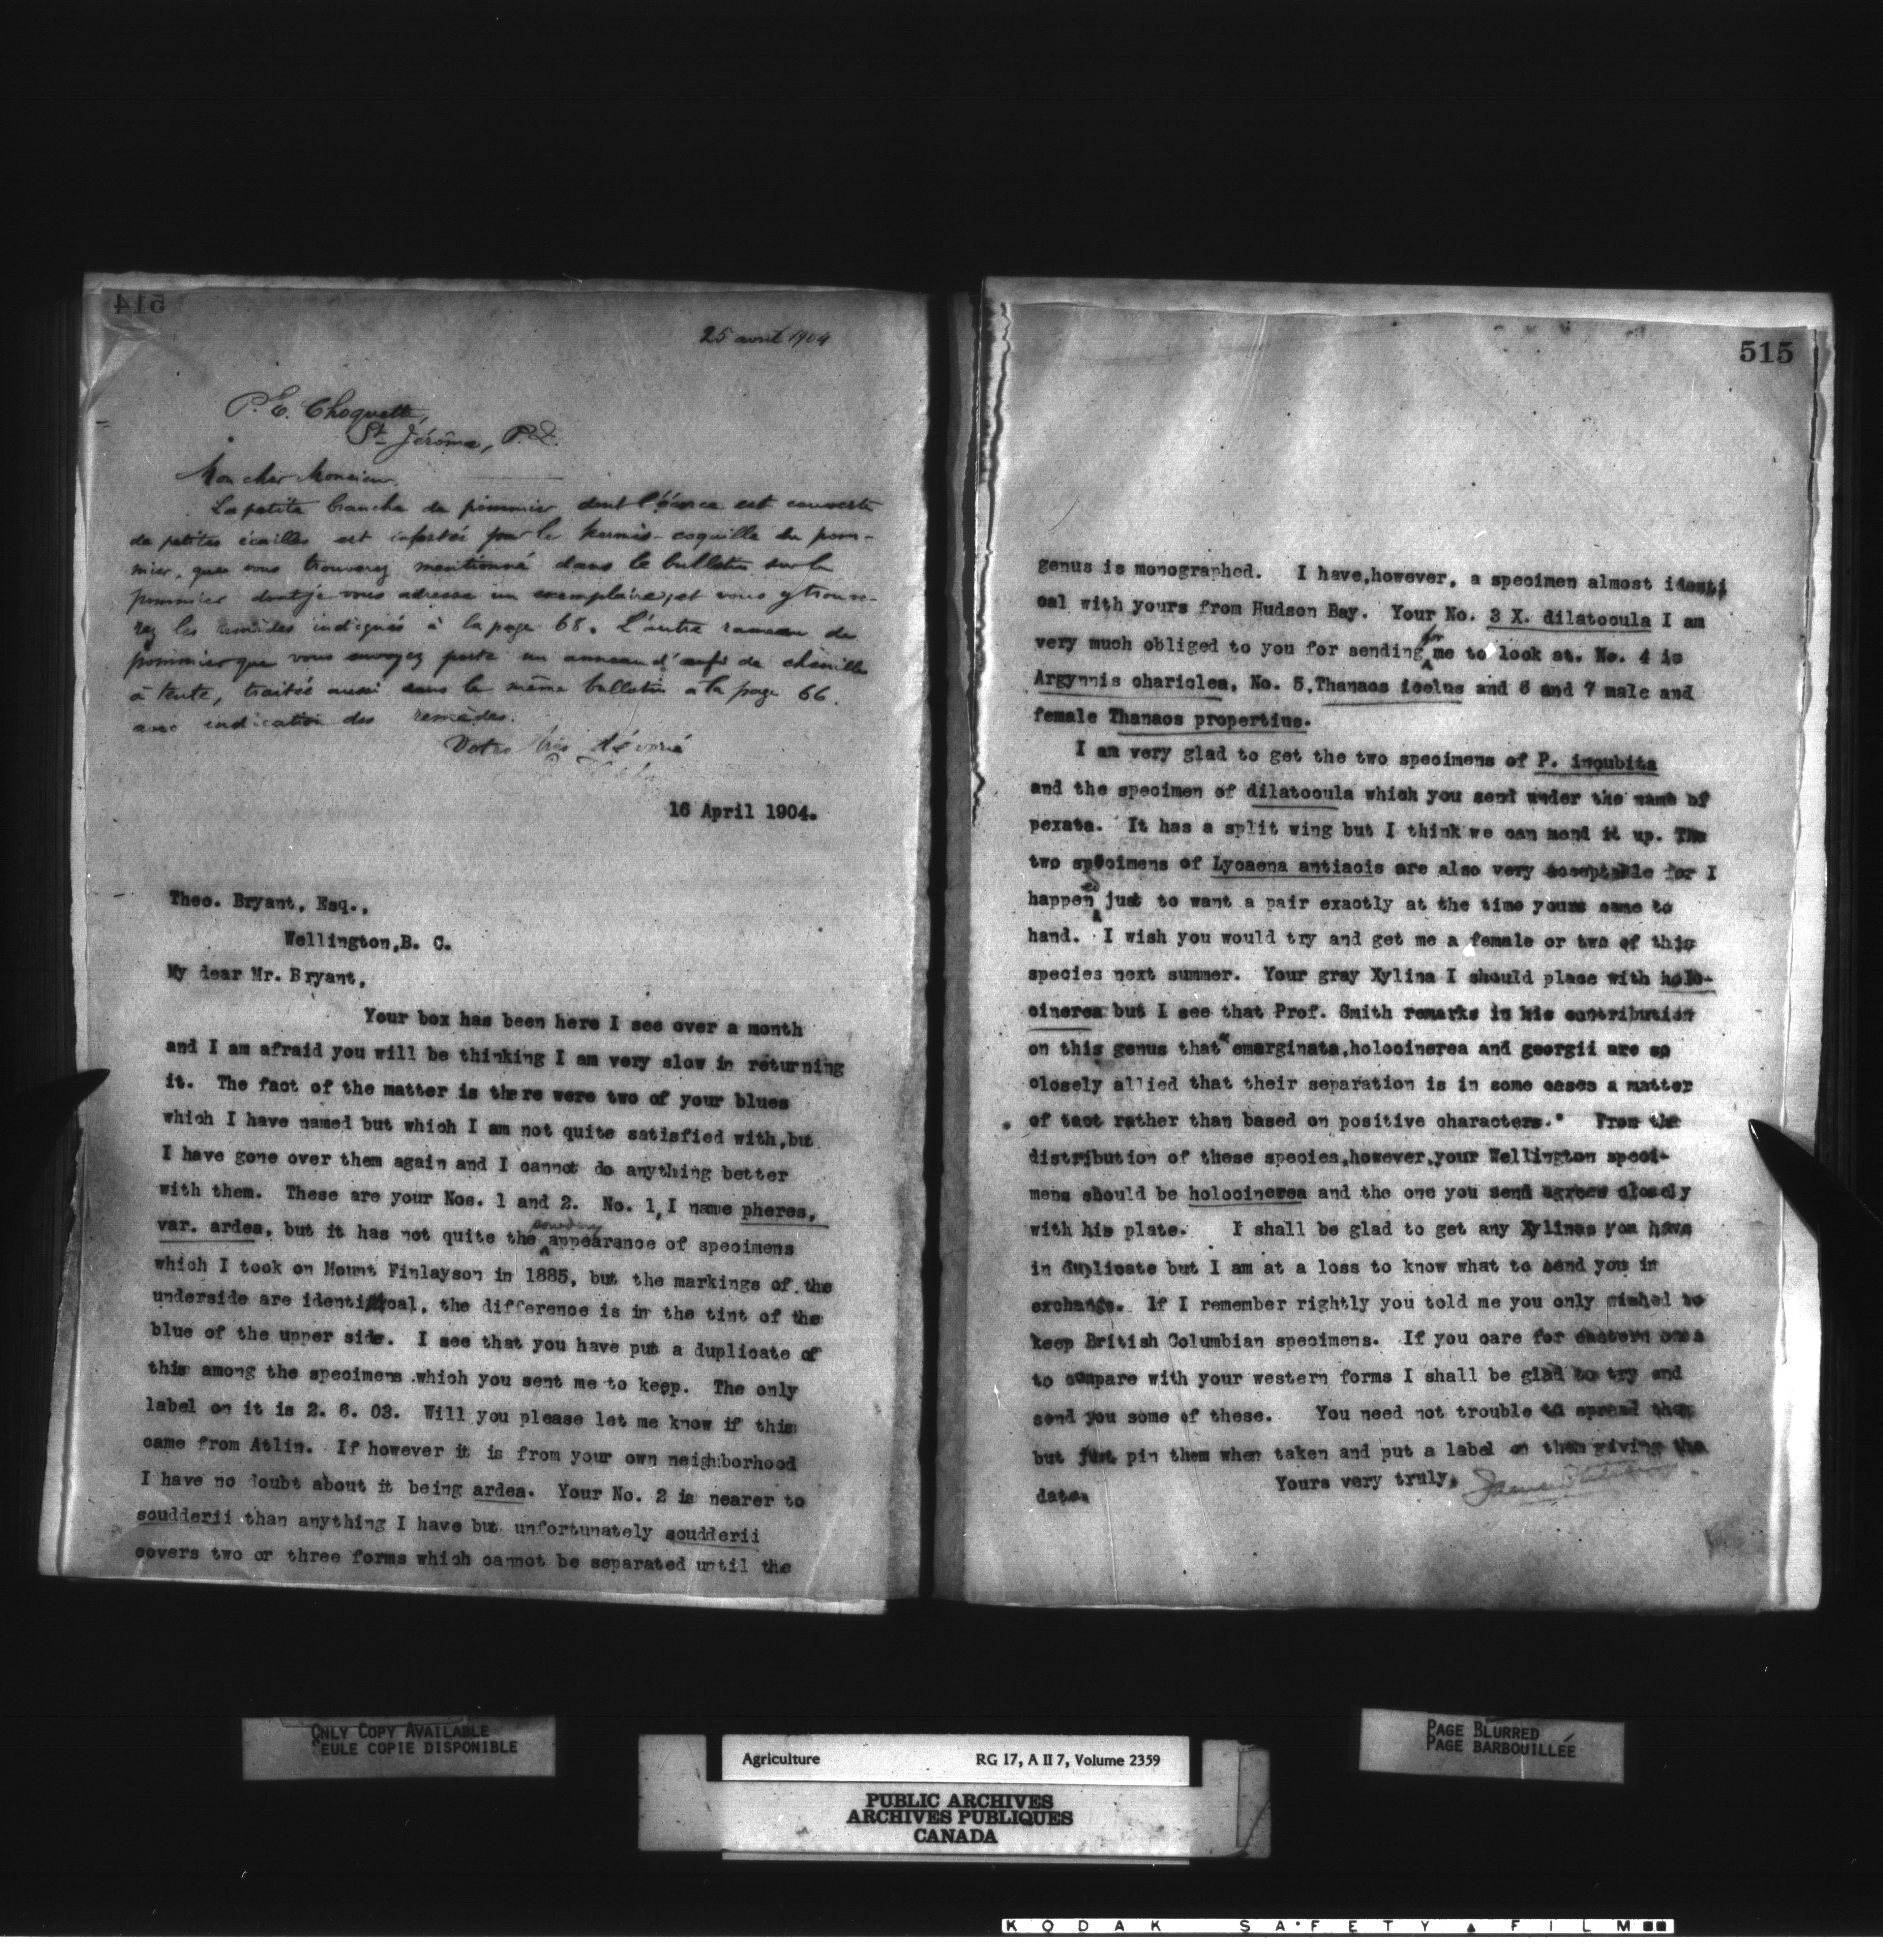 514
25 avril 1904
P. E. Choquette,
St Jérôme, P.Q.
Mon cher Monsieur.
La petite branche de pommier dont l'écorce est couverte
de petites écailles est infestée par le kermès-coquille du pom-
mier, que vous trouverez mentionné dans le bulletin sur le
pommier dont je vous adresse un exemplaire, et vous y trouve-
rez les remèdes indiqués à la page 68. L'autre rameau de
pommier que vous envoyez porte un anneau d'œufs de chenille
à tente, traitée aussi dans le même bulletin à la page 66.
avec indication des remèdes.
Votre très dévoué
16 April 1904.
Theo. Bryant, Esq.,
Wellington,B. C.
My dear Mr. Bryant,
Your box has been here I see over a month
and I am afraid you will be thinking I am very slow in returning
it. The fact of the matter is there were two of your blues
which I have named but which I am not quite satisfied with,but
I have gone over them again and I cannot do anything better
with them. These are your Nos. 1 and 2. No. 1, I name pheres,
var. ardea, but it has not quite the powdery appearance of specimens
which I took on Mount Finlayson in 1885, but the markings of the
underside are identical, the difference is in the tint of the
blue of the upper side. I see that you have put a duplicate of
this among the specimens which you sent me to keep. The only
label on it is 2. 6. 03. Will you please let me know if this
came from Atlin. If however it is from your own neighborhood
I have no doubt about it being ardea. Your No. 2 is nearer to
scudderii than anything I have but unfortunately scudderii
covers two or three forms which cannot be separated until the
515
genus is monographed. I have,however, a specimen almost identi
cal with yours from Hudson Bay. Your No. 3 X. dilatocula I am
very much obliged to you for sending for me to look at. No. 4 is
Argynnis chariclea, No. 5,Thanaos icelus and 6 and 7 male and
female Thanaos propertius.
I am very glad to get the two specimens of P. incubita
and the specimen of dilatocula which you send under the name of
pexata. It has a split wing but I think we can mend it up. The
two specimens of Lycaena antiacis are also very acceptable for I
happened just to want a pair exactly at the time yours came to
hand. I wish you would try and get me a female or two of this
species next summer. Your gray Xylina I should place with holo-
cinerea but I see that Prof. Smith remarks in his contribution
on this genus that "emarginata,holocinerea and georgii are so
closely allied that their separation is in some cases a matter
of tact rather than based on positive characters." From the
distribution of these species,however,your Wellington speci-
mens should be holocinerea and the one you send agrees closely
with his plate. I shall be glad to get any Xylinas you have
in duplicate but I am at a loss to know what to send you in
exchange. If I remember rightly you told me you only wished to
keep British Columbian specimens. If you care for eastern ones
to compare with your western forms I shall be glad to try and
send you some of these. You need not trouble to spread them
but just pin them when taken and put a label on them giving the
date.
Yours very truly,
ONLY COPY AVAILABLE
SEULE COPIE DISPONIBLE
PAGE BLURRED
PAGE BARBOUILLÉE
Agriculture RG 17, A II 7, Volume 2359
PUBLIC ARCHIVES
ARCHIVES PUBLIQUES
CANADA
KODAK SAFETY FILM